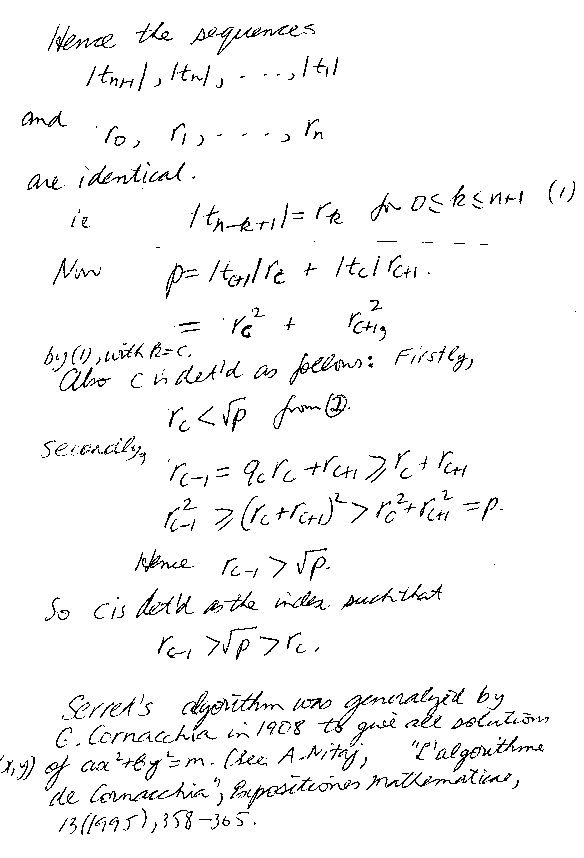 Hence the sequences
|tn+1|, |tn|, . . . ., |t1|
and
r0, r1, . . . . , rn
are identical.
ie |tn-k+1| = rk for 0 ≤ k ≤ n+1 (1)
Now p = |tc+1| rc + |tc| rc+1.
= rc² + rc+1²,
by (1), with k=c.
Also c is det'd as follows: Firstly,
rc < √p from (2).
Secondly,
rc-1 = qc rc + rc+1 ≥ rc + rc+1
rc-1² ≥ (rc + rc+1)² > rc² + rc+1² = p.
Hence rc-1 > √p.
So c is det'd as the index such that
rc-1 > √p > rc.
Serret's algorithm was generalized by
G. Cornacchia in 1908 to give all solutions
(x,y) of ax²+by²=m. (See A. Nitaj, "L'algorithme
de Cornacchia", Expositiones Mathematicae,
13 (1995), 358-365.